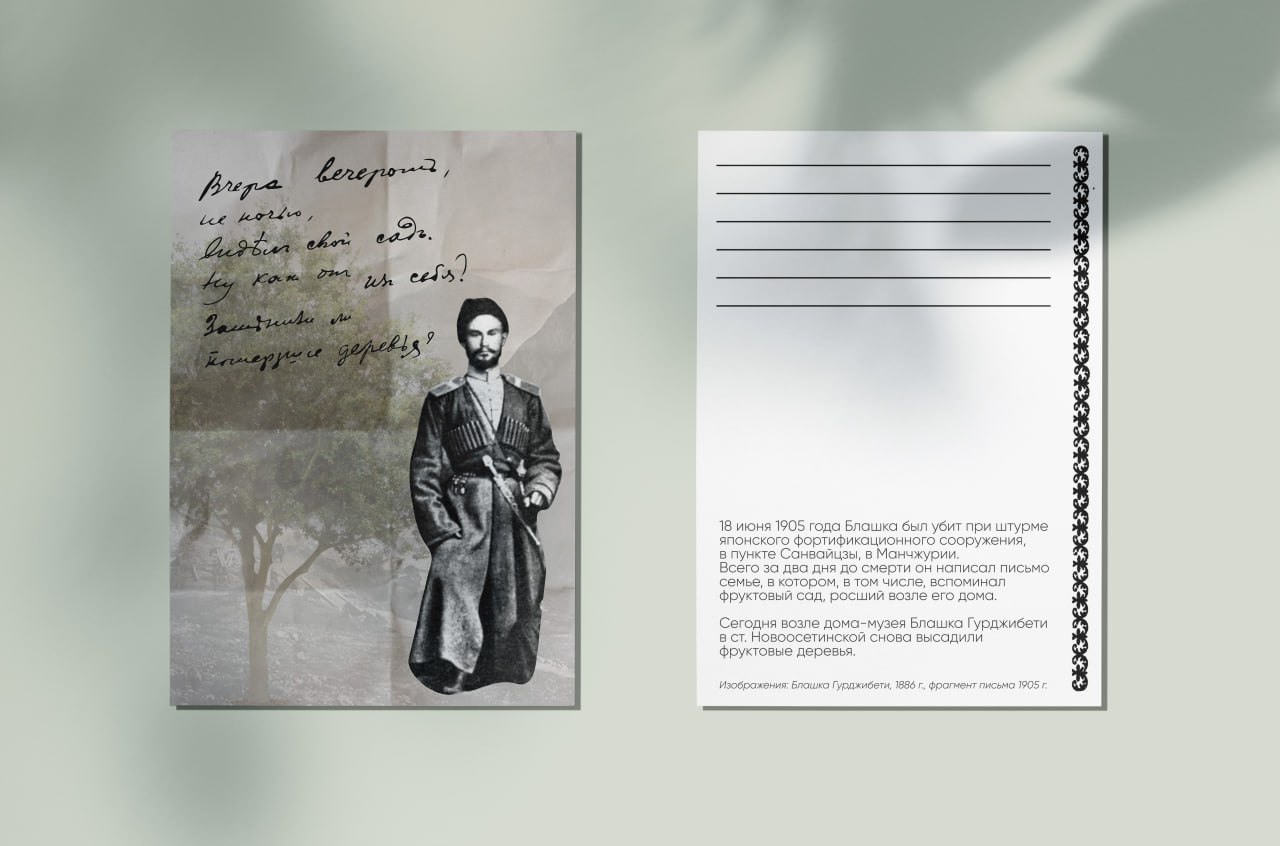 Вчера вечеромъ,
не ночью,
видѣлъ свой садъ.
Ну как он из себя?
ли
деревья?
18 июня 1905 года Блашка был убит при штурме
японского фортификационного сооружения,
в пункте Санвайцзы, в Манчжурии.
Всего за два дня до смерти он написал письмо
семье, в котором, в том числе, вспоминал
фруктовый сад, росший возле его дома.
Сегодня возле дома-музея Блашка Гурджибети
в ст. Новоосетинской снова высадили
фруктовые деревья.
Изображения: Блашка Гурджибети, 1886 г., фрагмент письма 1905 г.